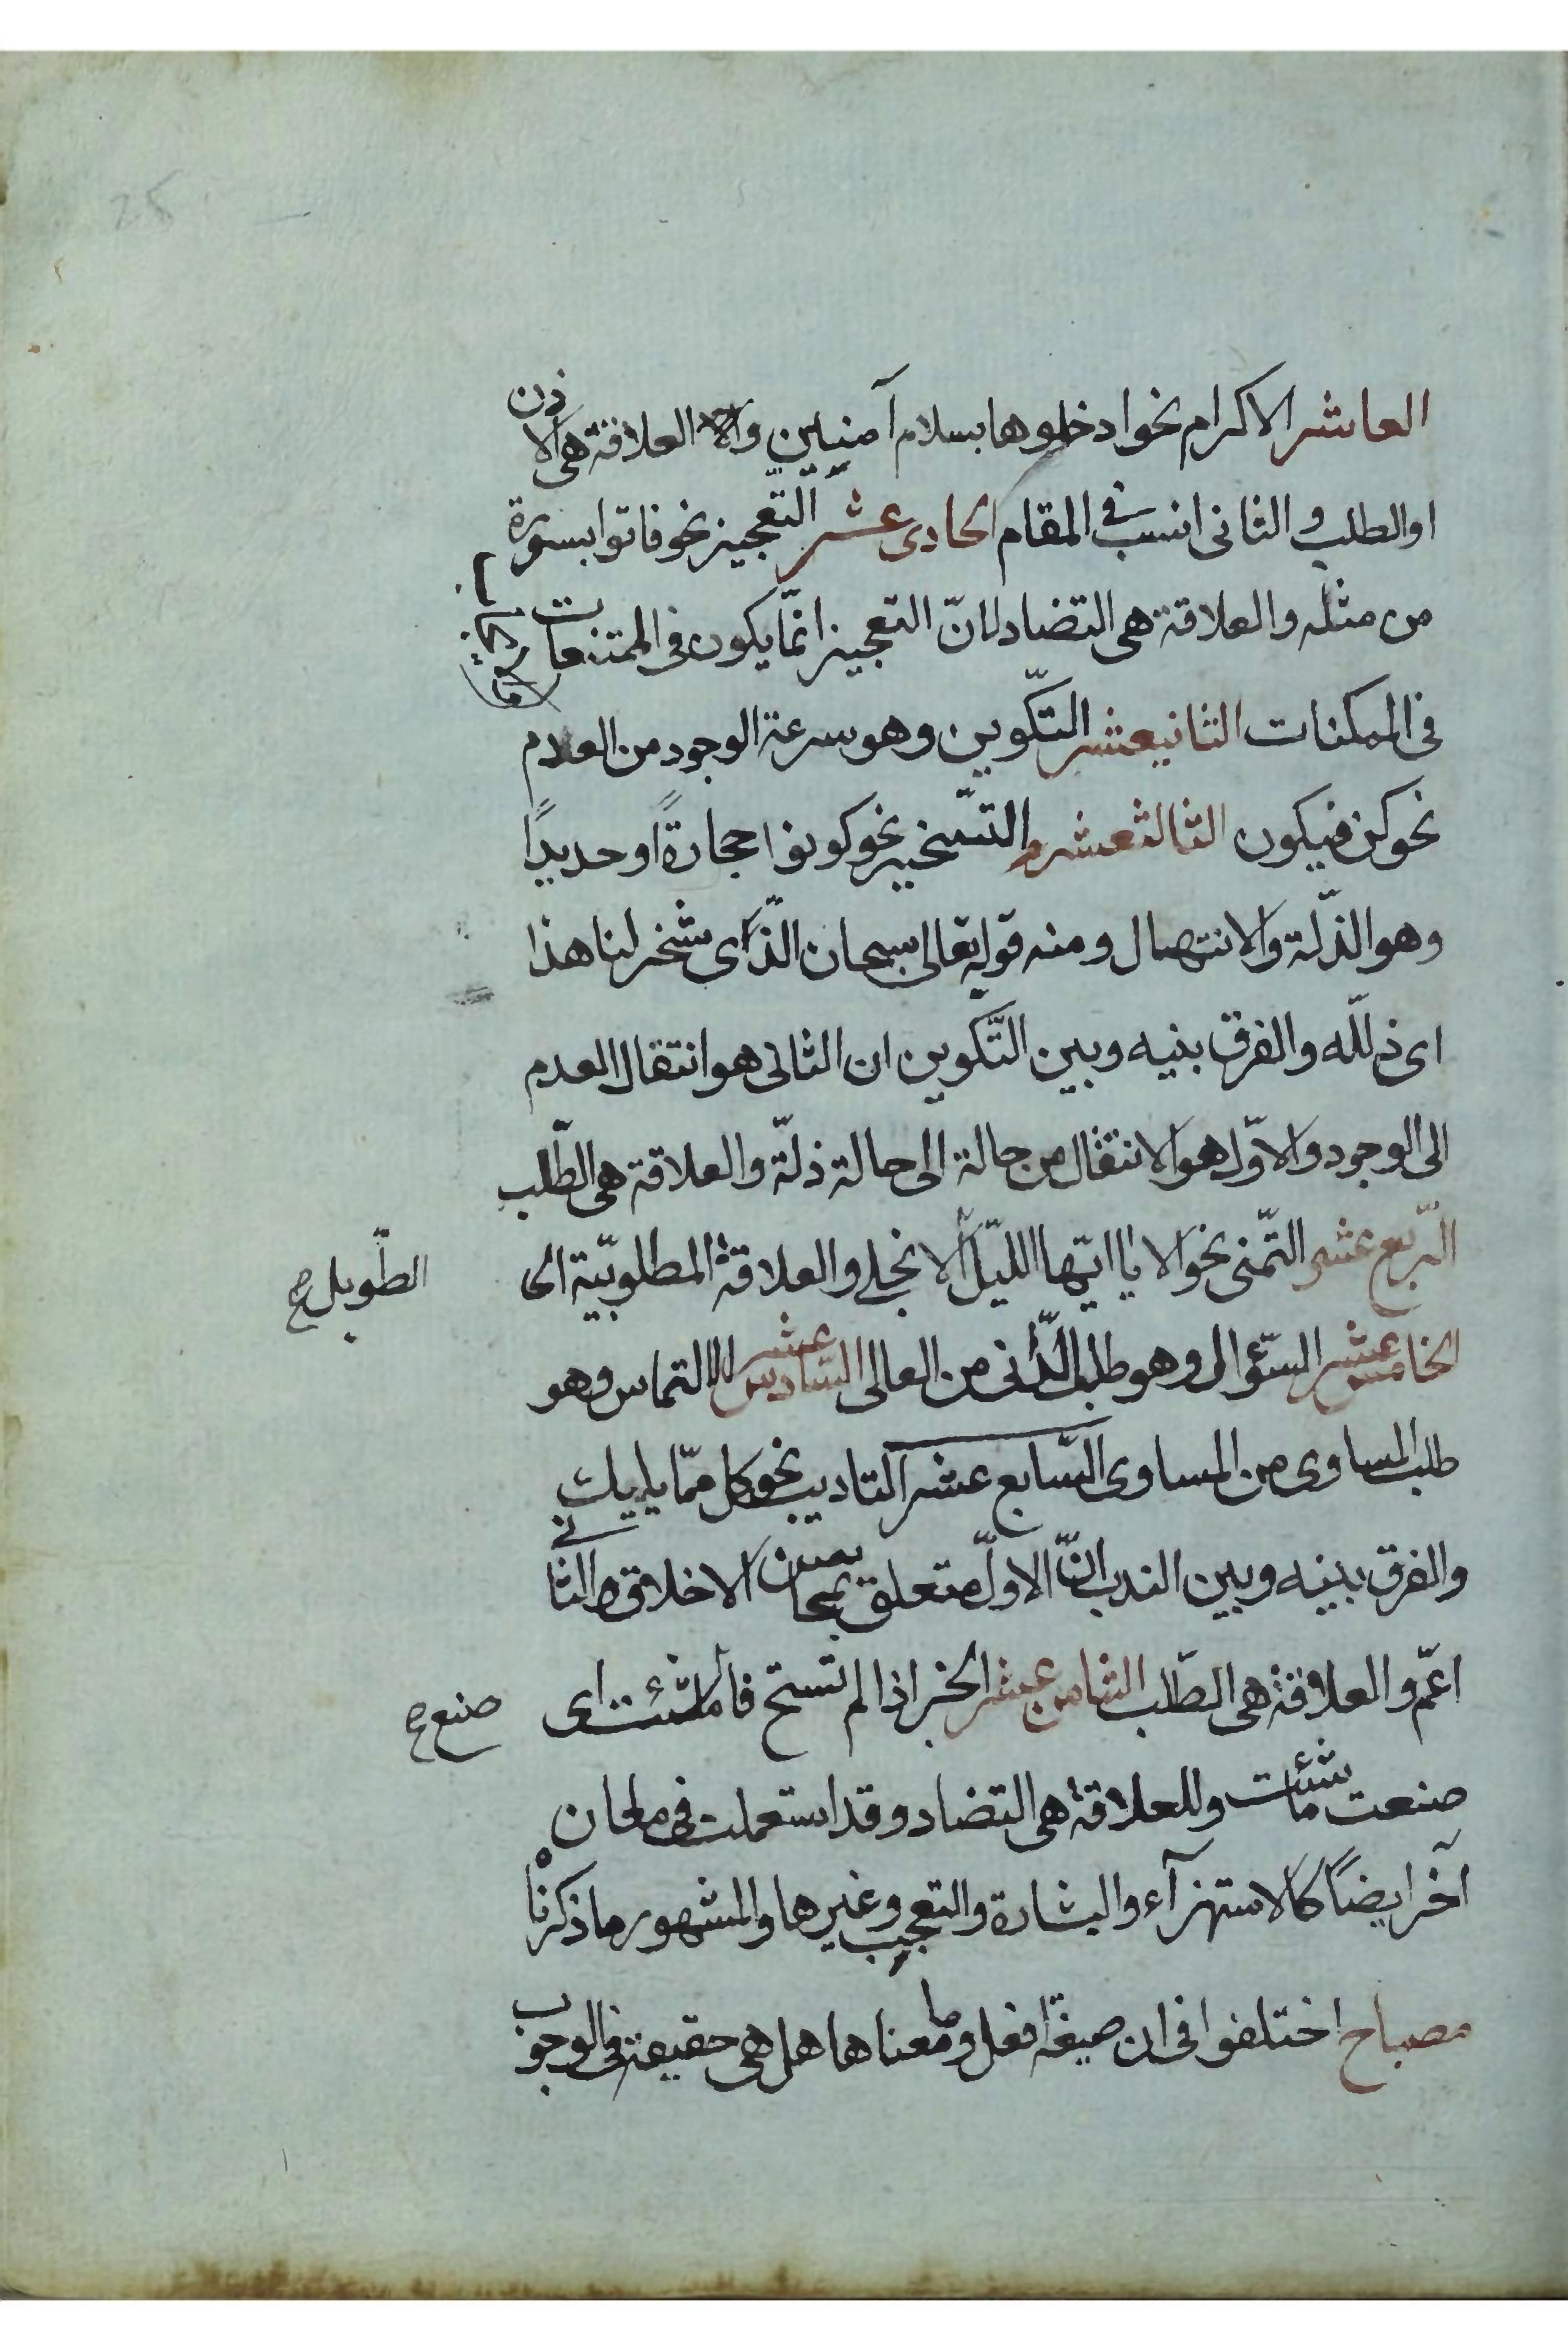 العاشر الاكرام نحو ادخلوها بسلام آمنين والعلاقة هى الاذن
او الطلب و الثانى انسب فى المقام الحادى عشر التّعجيز نحو فاتوا بسورة
من مثله والعلاقة هى التضاد لانّ التعجيز انّما يكون فى الممتنعات
فى الممكنات الثانيعشر التّكوين وهو سرعة الوجود من العدم
نحو كن فيكون الثالثعشر التّسخير نحو كونوا حجارةً او حديدًا
وهو الذّلة والانتهال ومنه قوله تعالى سبحان الّذى سخر لنا هذا
اى ذلله والفرق بينه وبين التّكوين ان الثانى هو انتقال العدم
الى الوجود والاوّل هو الانتقال من حالة الى حالة ذلّة والعلاقة هى الطّلب
الرّبع عشر التّمنى نحو الا يا ايّها اللّيل الا نجلى والعلاقة المطلوبيّة اى
الطّويل ح
الخامس عشر السّؤال وهو طلب الدّانى من العالى السّادس عشر الالتماس وهو
طلب المساوى من المساوى السّابع عشر التاديب نحو كل ممّا يليك
والفرق بينه وبين الندب انّ الاوّل متعلق بمحاسن الاخلاق والثانى
اعمّ والعلاقة هى الطّلب الثامن عشر الخبر اذا لم تستح فا ما شئت اى
صنع ح
صنعت ما شئت وللعلاقة هى التضاد وقد استعملت فى معان
آخر ايضًا كالاستهزآء والبشارة والتعجيب وغيرها والمشهور ما ذكرناه
مصباح اختلفوا فى ان صيغة افعل وما معناها هل هى حقيقة فى الوجوب